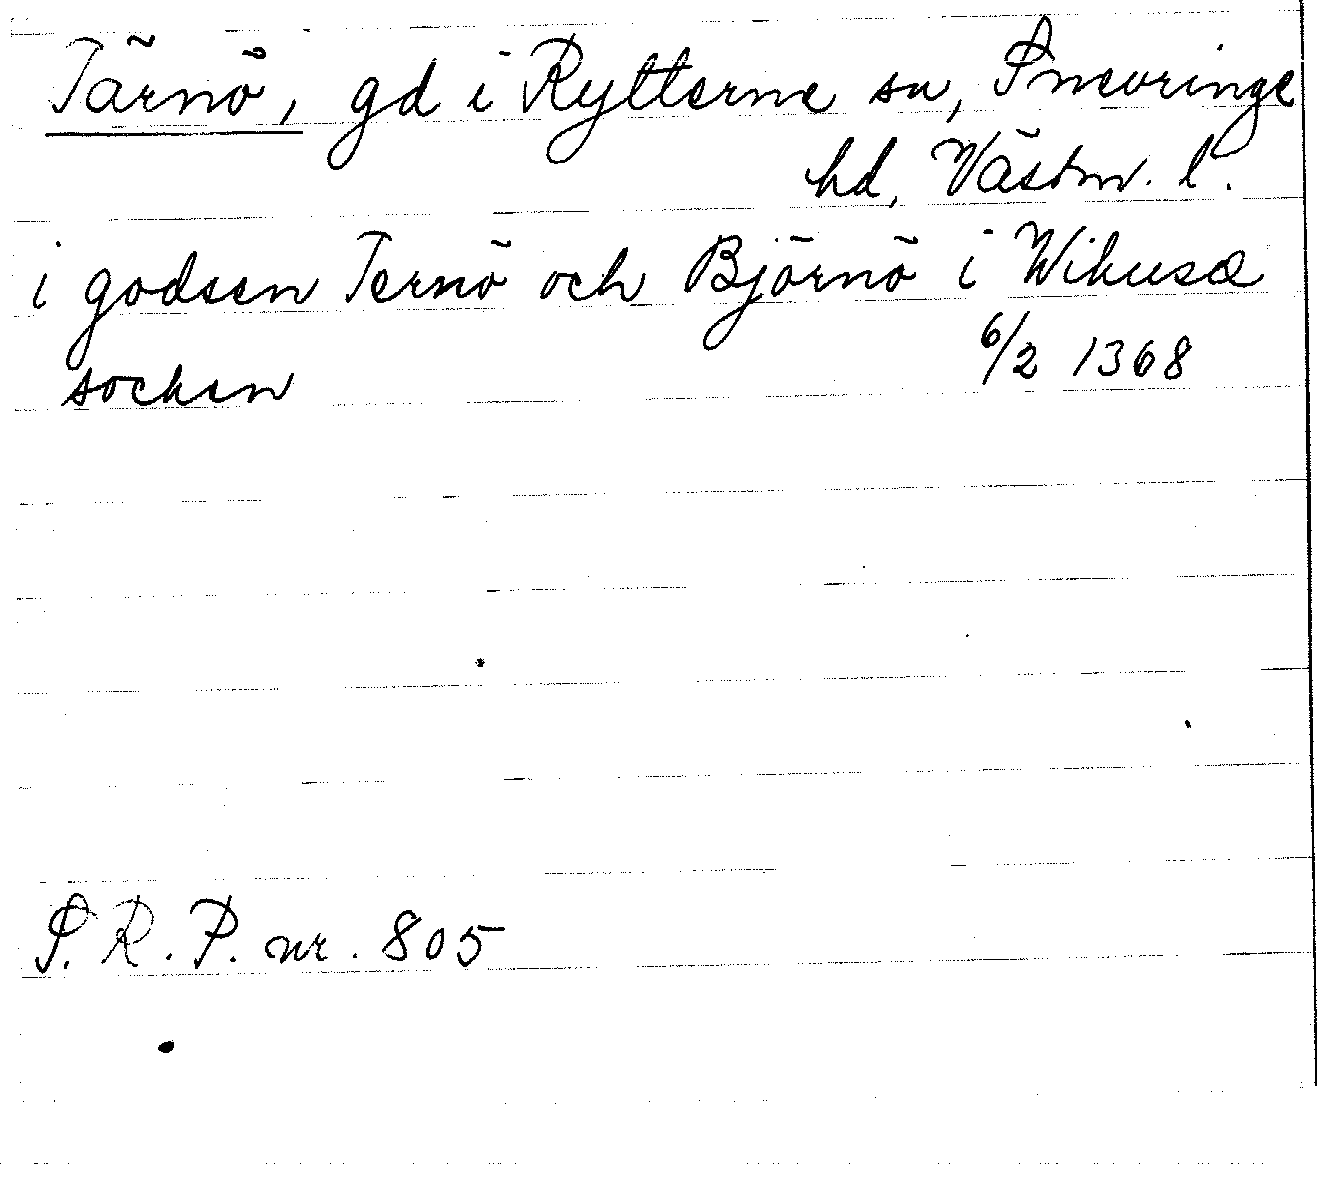 Tärnö, gd i Rytterne sn, Snevringe
hd, Västm. l.
i godsen Ternö och Björnö i Wikusæ
socken 6/2 1368
S. R. P. nr. 805